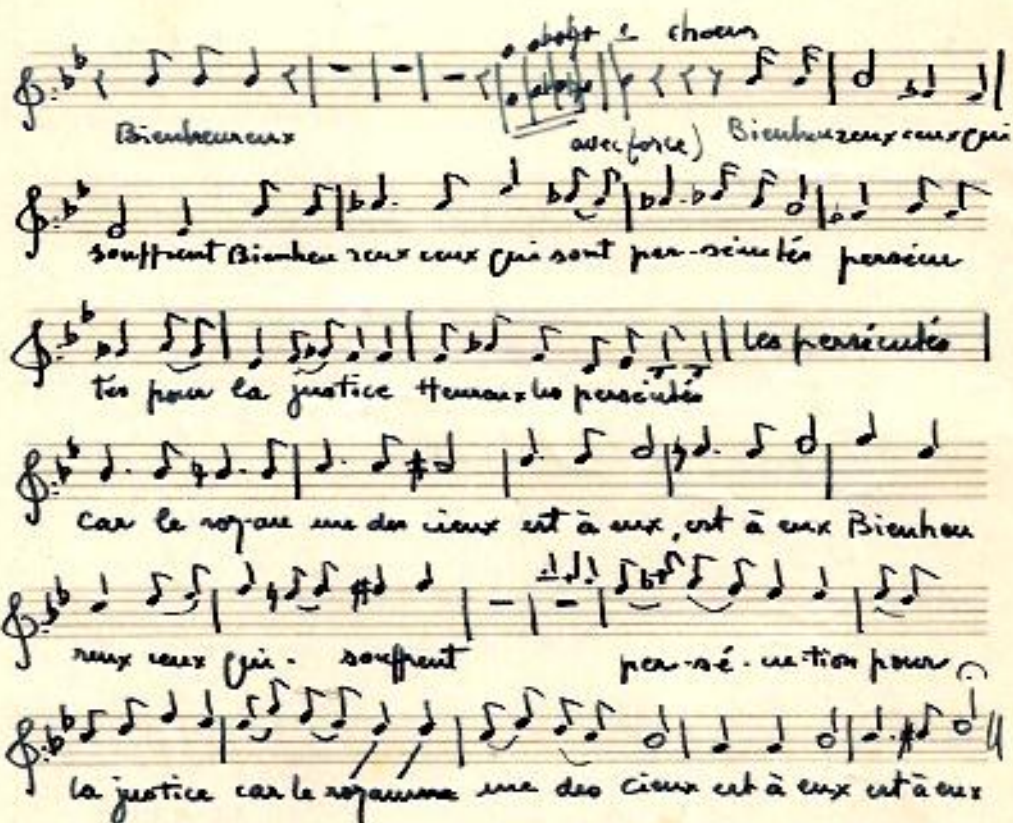 choeur
Bienheureux avec force) Bienheureux ceux qui
souffrent Bienheu reux ceux qui sont per--sécutés persécu
les persécutés
tés pour la justice Heureux les persécutés
car le roy-au me des cieux est à eux, est à eux Bienheu
reux ceux qui - souffrent per--sé-cu-tion pour
la justice car le royaume me des cieux est à eux est à eux